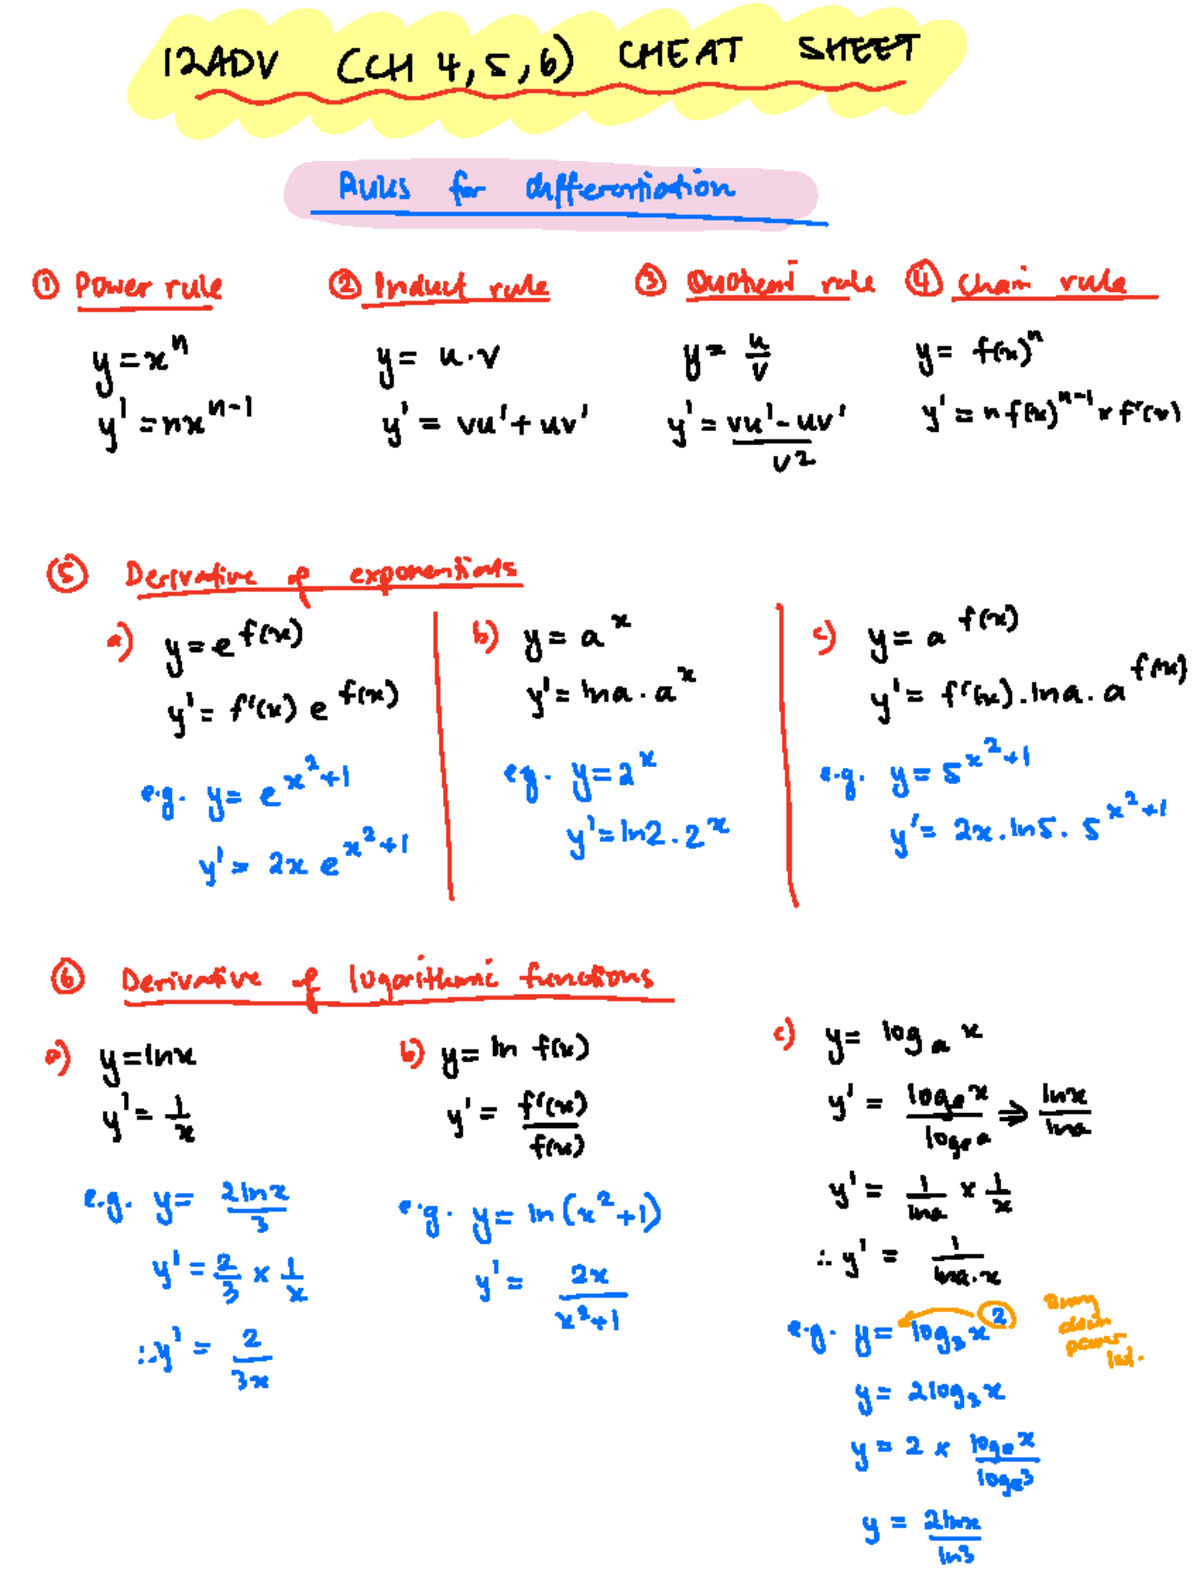 12ADV (CH 4,5,6) CHEAT SHEET
Rules for differentiation
① Power rule
y = xⁿ
y' = nxⁿ⁻¹
② Product rule
y = u·v
y' = vu' + uv'
③ Quotient rule
y = u/v
y' = (vu' - uv')/v²
④ Chain rule
y = f(x)ⁿ
y' = n f(x)ⁿ⁻¹ × f'(x)
⑤ Derivative of exponentials
a) y = e^f(x)
y' = f'(x) e^f(x)
e.g. y = e^(x²+1)
y' = 2x e^(x²+1)
b) y = a^x
y' = ln a · a^x
eg. y = 2^x
y' = ln2 · 2^x
c) y = a^f(x)
y' = f'(x) . ln a . a^f(x)
e.g. y = 5^(x²+1)
y' = 2x . ln5 . 5^(x²+1)
⑥ Derivative of logarithmic functions
a) y = lnx
y' = 1/x
e.g. y = 2lnx/3
y' = 2/3 × 1/x
∴ y' = 2/3x
b) y = ln f(x)
y' = f'(x)/f(x)
e.g. y = ln(x²+1)
y' = 2x/(x²+1)
c) y = logₐ x
y' = logₑ x/logₑ a ⇒ lnx/lna
y' = 1/lna × 1/x
∴ y' = 1/(lna·x)
e.g. y = log₃ x²
down
power
y = 2log₃ x
y = 2 × logₑ x/logₑ 3
y = 2lnx/ln3